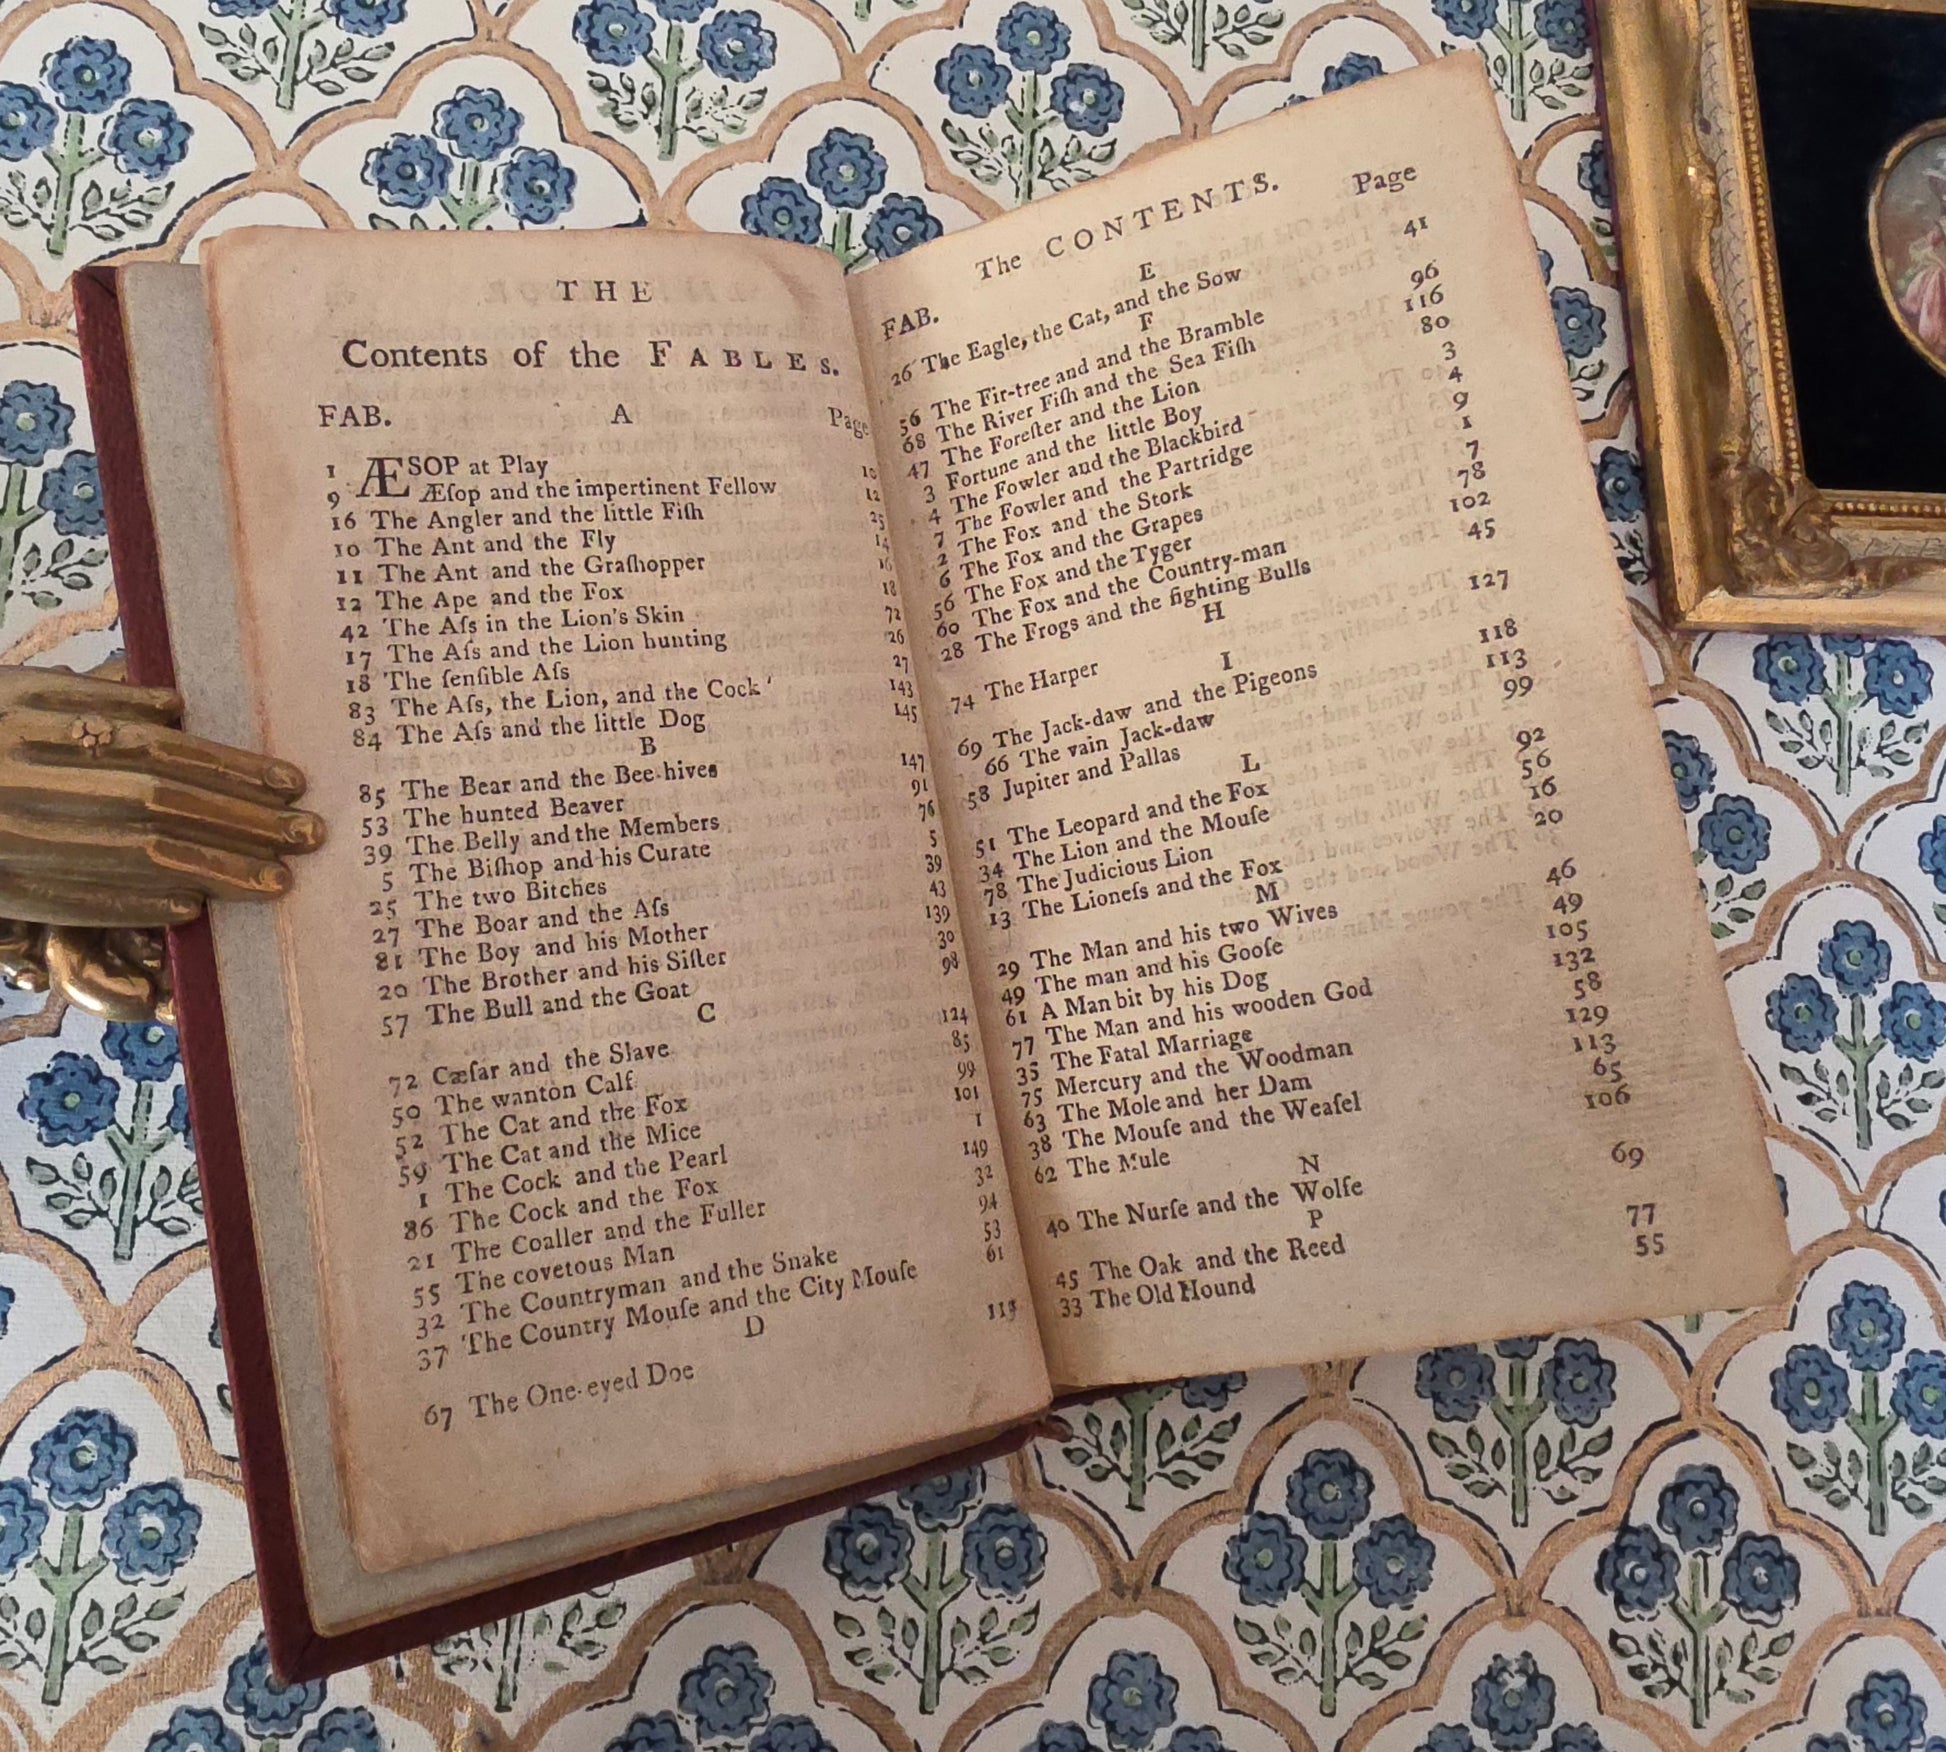 THE
Contents of the FABLES.
FAB. A Page
1 ÆSOP at Play 10
9 Æſop and the impertinent Fellow 12
16 The Angler and the little Fiſh 25
10 The Ant and the Fly 14
11 The Ant and the Graſhopper 16
12 The Ape and the Fox 18
42 The Aſs in the Lion's Skin 72
17 The Aſs and the Lion hunting 26
18 The ſenſible Aſs 27
83 The Aſs, the Lion, and the Cock 143
84 The Aſs and the little Dog 145
B
85 The Bear and the Bee-hives 147
53 The hunted Beaver 91
39 The Belly and the Members 76
5 The Biſhop and his Curate 5
25 The two Bitches 39
27 The Boar and the Aſs 43
81 The Boy and his Mother 139
20 The Brother and his Siſter 30
57 The Bull and the Goat 98
C
72 Cæſar and the Slave 124
50 The wanton Calf 85
52 The Cat and the Fox 99
59 The Cat and the Mice 101
1 The Cock and the Pearl 1
86 The Cock and the Fox 149
21 The Coaller and the Fuller 32
55 The covetous Man 94
32 The Countryman and the Snake 53
37 The Country Mouſe and the City Mouſe 61
D
67 The One-eyed Doe 115
The CONTENTS.
FAB. E Page
26 The Eagle, the Cat, and the Sow 41
F
56 The Fir-tree and and the Bramble 96
68 The River Fiſh and the Sea Fiſh 116
47 The Foreſter and the Lion 80
3 Fortune and the little Boy 3
4 The Fowler and the Blackbird 4
7 The Fowler and the Partridge 9
2 The Fox and the Stork 1
6 The Fox and the Grapes 7
56 The Fox and the Tyger 78
60 The Fox and the Country-man 102
28 The Frogs and the fighting Bulls 45
H
74 The Harper 127
I
69 The Jack-daw and the Pigeons 118
66 The vain Jack-daw 113
58 Jupiter and Pallas 99
L
51 The Leopard and the Fox 92
34 The Lion and the Mouſe 56
78 The Judicious Lion 16
13 The Lioneſs and the Fox 20
M
29 The Man and his two Wives 46
49 The man and his Gooſe 49
61 A Man bit by his Dog 105
77 The Man and his wooden God 132
35 The Fatal Marriage 58
75 Mercury and the Woodman 129
63 The Mole and her Dam 113
38 The Mouſe and the Weaſel 65
62 The Mule 106
N
40 The Nurſe and the Wolfe 69
P
45 The Oak and the Reed 77
33 The Old Hound 55